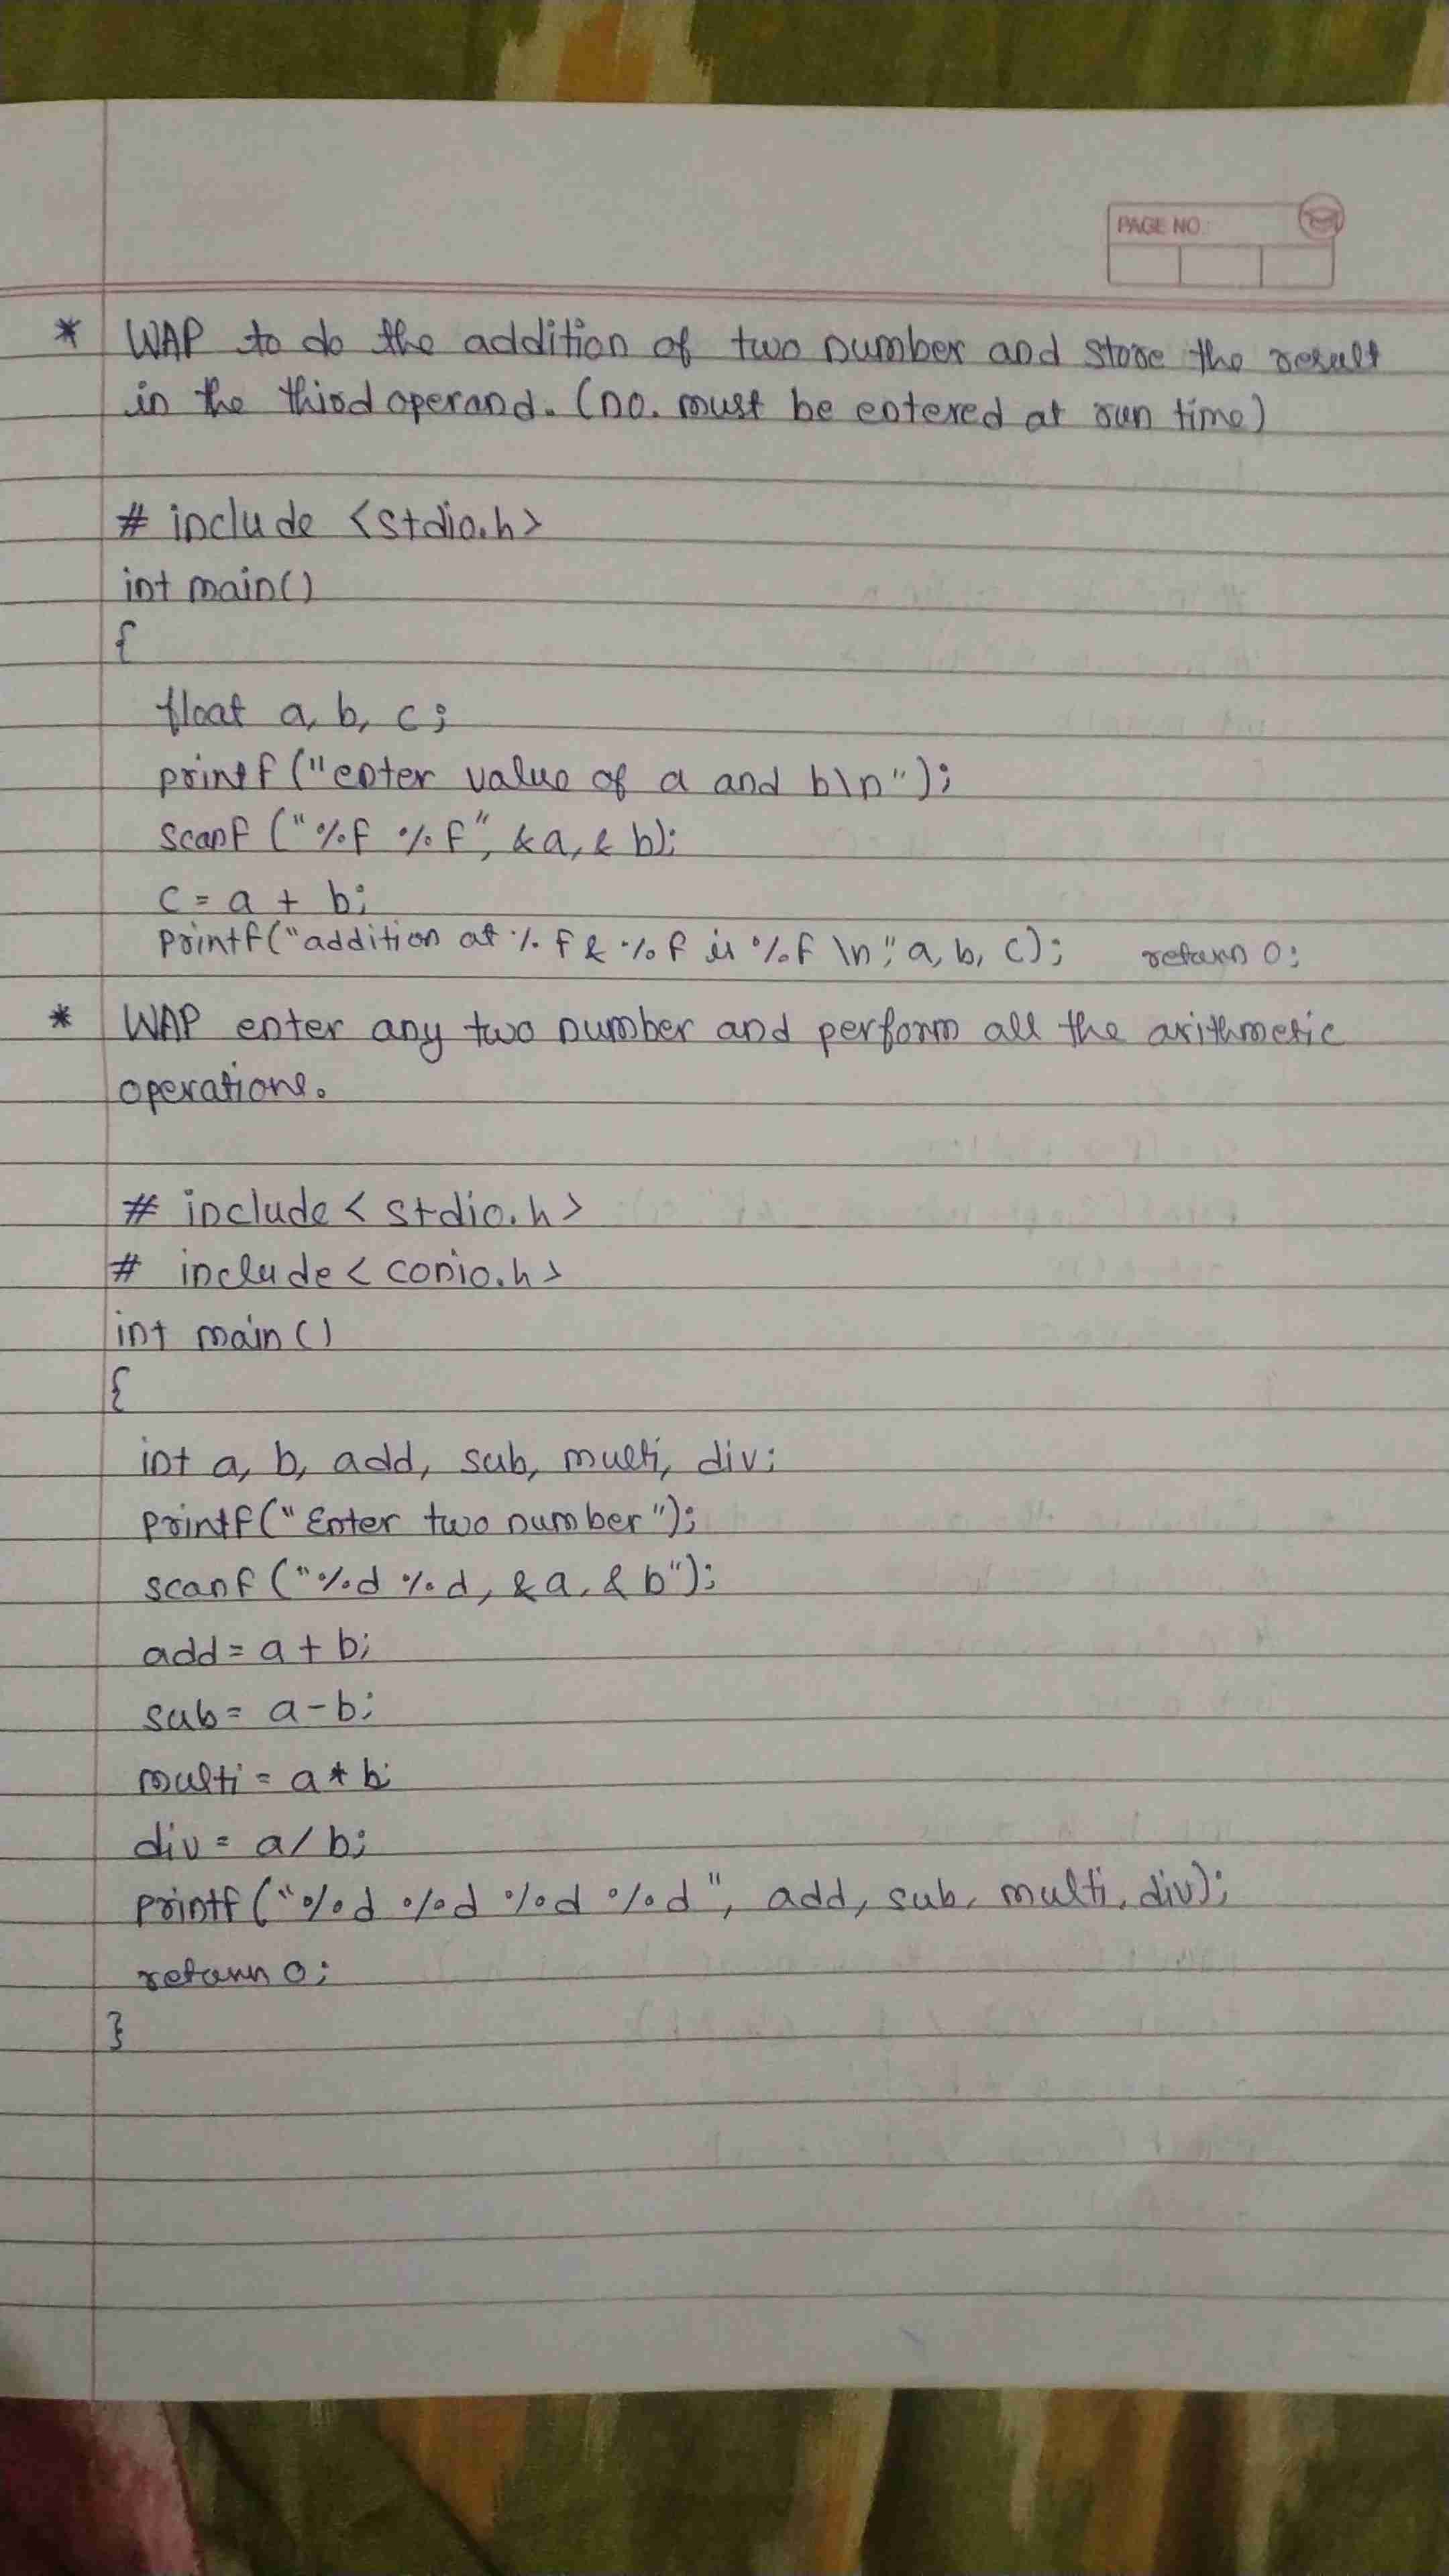 PAGE NO.
* WAP to do the addition of two number and store the result
in the third operand. (no. must be entered at run time)
# include <stdio.h>
int main()
{
float a, b, c;
printf ("enter value of a and b\n");
scanf ("%f %f", &a, & b);
c = a + b;
printf("addition at %f & %f is %f \n", a, b, c); return 0;
* WAP enter any two number and perform all the arithmetic
operations.
# include < stdio.h>
# include < conio.h>
int main ()
{
int a, b, add, sub, multi, div;
printf("Enter two number");
scanf ("%d %d, &a, & b");
add = a + b;
sub = a - b;
multi = a * b;
div = a / b;
printf ("%d %d %d %d", add, sub, multi, div);
return 0;
}